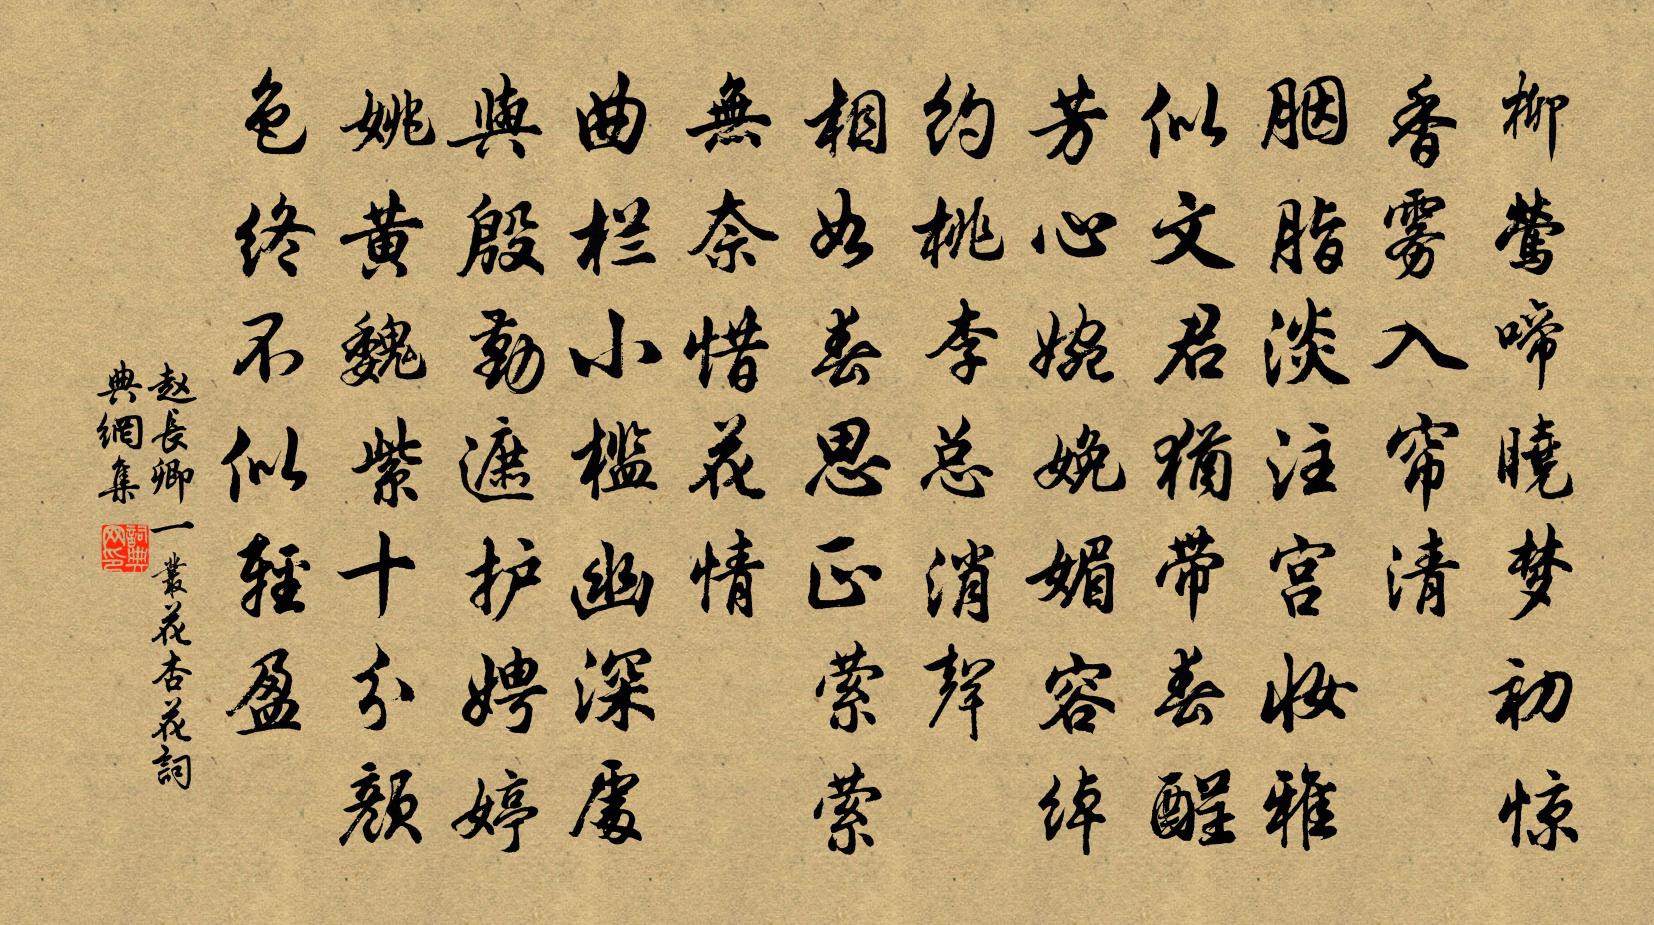 柳莺啼曉梦初惊
香雾入帘清
胭脂淡注宫妆雅
似文君猶带春醒
芳心婉娩媚容绰
约桃李总消聲
相如春思正萦萦
無奈惜花情
曲栏小槛幽深處
與殷勤遮护娉婷
姚黄魏紫十分颜
色终不似輕盈
赵長卿一叢花杏花詞
典網集
詞典网印